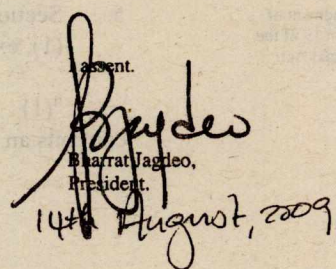 I assent.
Bharrat Jagdeo,
President.
14th August, 2009